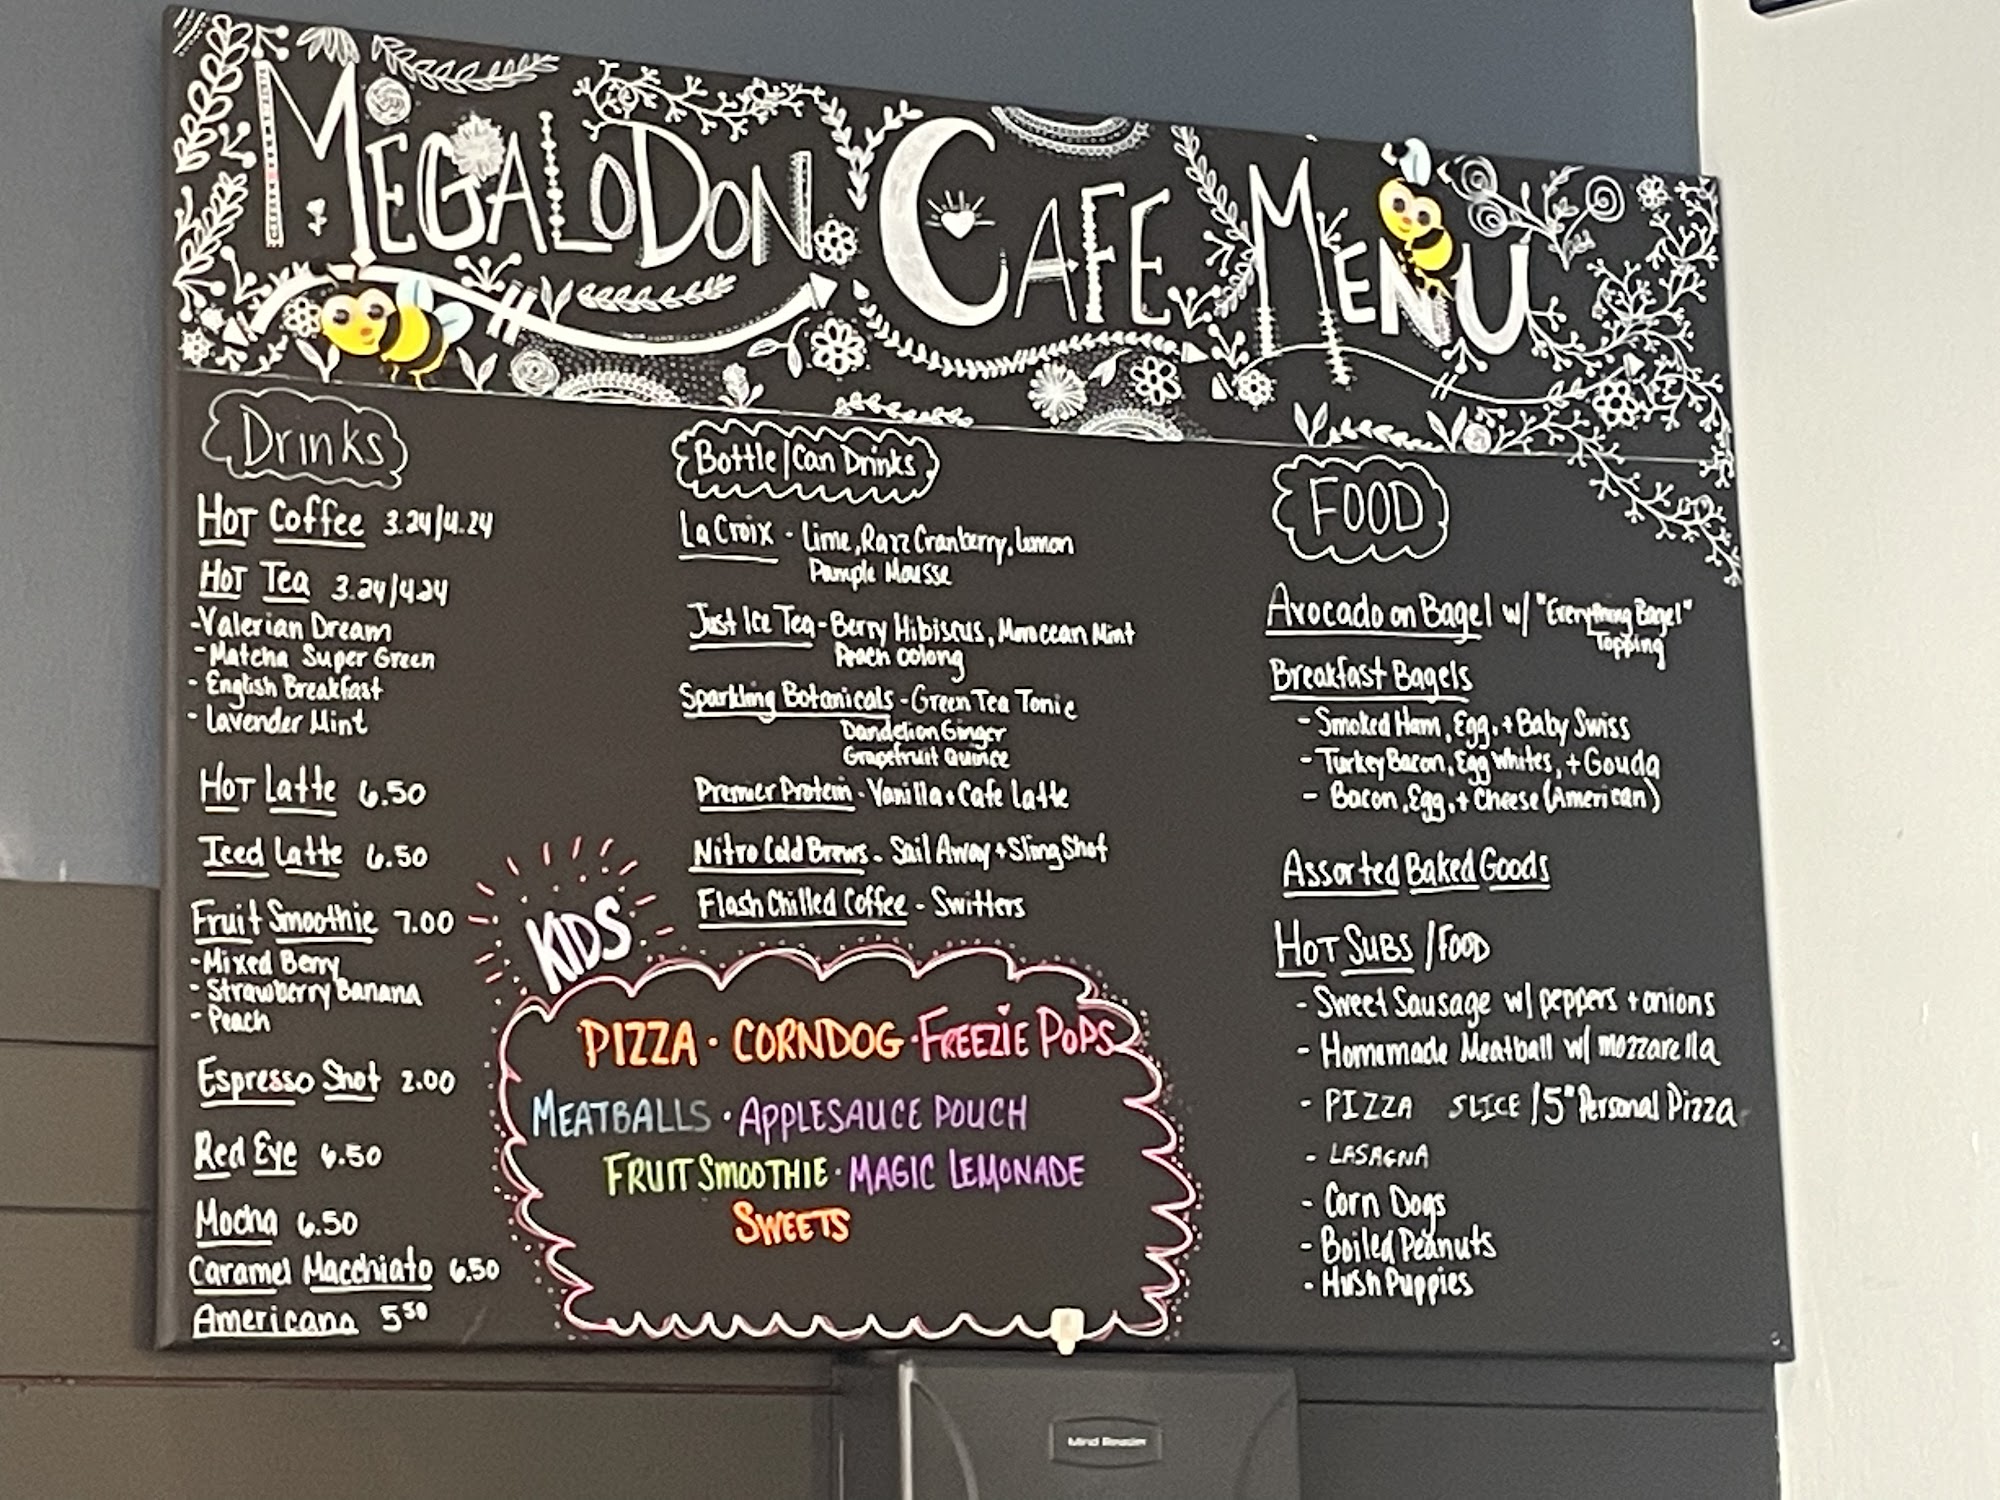 MEGALODON CAFE MENU
Drinks
HOT Coffee 3.24/4.24
HOT Tea 3.24/4.24
-Valerian Dream
-Matcha Super Green
- English Breakfast
- Lavender Mint
HOT Latte 6.50
Iced Latte 6.50
Fruit Smoothie 7.00
-Mixed Berry
- Strawberry Banana
- Peach
Espresso Shot 2.00
Red Eye 6.50
Mocha 6.50
Caramel Macchiato 6.50
Americano 5.50
Bottle/Can Drinks
La Croix - Lime, Razz Cranberry, Lemon
Pample Mousse
Just Ice Tea - Berry Hibiscus, Moroccean Mint
Peach Oolong
Sparkling Botanicals - Green Tea Tonic
Dandelion Ginger
Grapefruit Quince
Premier Protein - Vanilla + Cafe Latte
Nitro Cold Brews - Sail Away + Sling Shot
Flash Chilled Coffee - Switters
KIDS
PIZZA · CORNDOG · FREEZIE POPS
MEATBALLS · APPLESAUCE POUCH
FRUIT SMOOTHIE · MAGIC LEMONADE
SWEETS
FOOD
Avocado on Bagel w/ "Everything Bagel"
Topping
Breakfast Bagels
- Smoked Ham, Egg, + Baby Swiss
- Turkey Bacon, Egg Whites, + Gouda
- Bacon, Egg, + Cheese (American)
Assorted Baked Goods
HOT SUBS / FOOD
- Sweet Sausage w/ peppers + onions
- Homemade Meatball w/ mozzarella
- PIZZA SLICE / 5" Personal Pizza
- LASAGNA
- Corn Dogs
- Boiled Peanuts
- Hush Puppies
Mind Reader